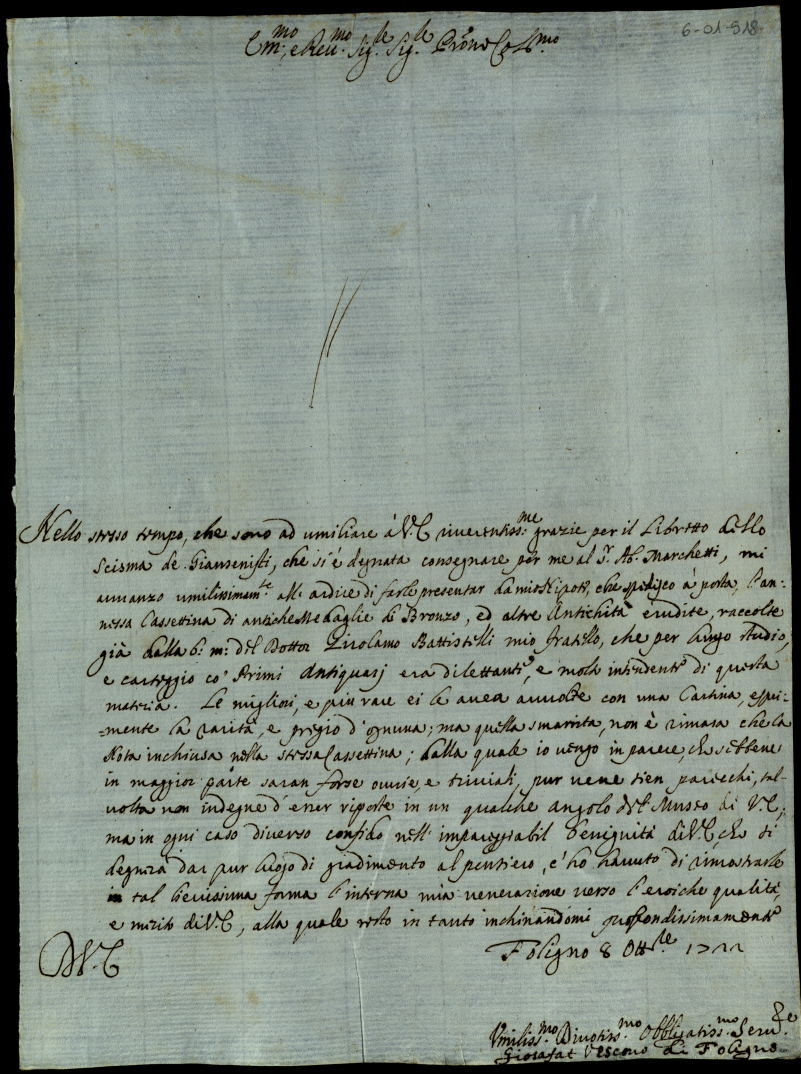 6-01-518
Em.mo, e Reu.mo Sig.le Sig.le Prone Col.mo
Nello stesso tempo, che sono ad umiliare à V.E riuerentiss.me grazie per il Libretto dello
Scisma de Giansenisti, che si è degnata consegnare per me al Sr. Ab. Marchetti, mi
auuanzo umilissimam.te all' ardire di farle presentar da mio Nipote, che spedisco à posta, l'an-
nessa Cassettina di antiche Medaglie di Bronzo, ed altre Antichità erudite, raccolte
già dalla b: m: del Dottor Girolamo Battistelli mio fratello, che per lungo studio,
e carteggio co' Primi Antiquarj era dilettante, e molto intendente di questa
materia. Le migliori, e piu rare ei le auea auuolte con una Cartina, espri-
-mente la rarità, e pregio d'ognuna; ma quella smarrita, non è rimasa che la
Nota inchiusa nella stessa Cassettina; dalla quale io uengo in parere, che sebbene
in maggior parte saran forse ouuie, e triuiali, pur uene sien parecchi, tal-
uolta non indegne d' esser riposte in un qualche angolo del Museo di V.E;
ma in ogni caso diuerso confido nell' impareggiabil benignità di V.E, che si
degnerà dar pur luogo di gradimento al pensiero, c'hò hauuto di rimostrarle
in tal leuissima forma l'interna mia uenerazione uerso l'eroiche qualità,
e merito di V.E, alla quale resto in tanto inchinandomi profondissimamente
D V.E
Foligno 8 Ott.le 1722
Vmiliss.mo Diuotiss.mo Obbligatiss.mo Seru.re
Giosafat Vescouo di Foligno